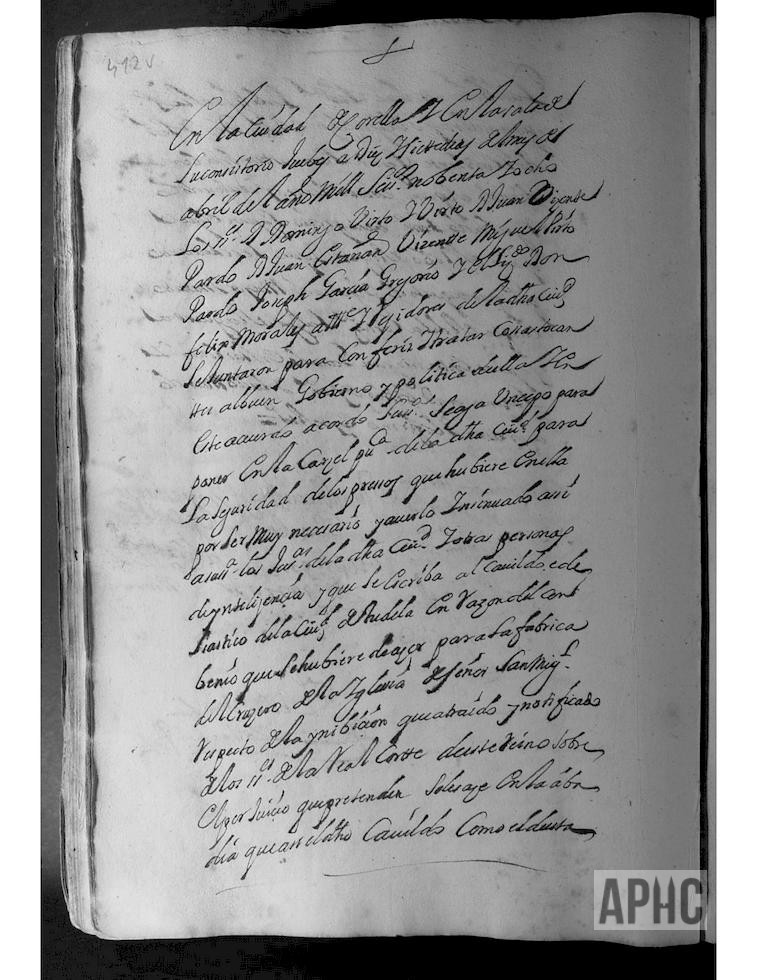 492v
En la ciudad de Corella Y En la sala de
su consistorio Juebes a Diez Y siete dias del mes de
abril del año Mill Seis.s nobenta Y ocho
Los SS.es D Domingo Virto Y Virto D Juan Vizente
Pardo D Juan Estañan Vizente Miguel Virto
Pardo Joseph Garcia Gregorio Y el liz.do Don
felix Morales all.e Y Rejidores de la dha ciu.d
se Juntaron para Conferir Y tratar Cossas tocan
tes al buen Gobierno y politica de ella Y en
este acuerdo acordo su ss.a se aga Un cepo para
poner En la Carzel pu.ca de la dha Ciu.d para
La seguridad de los presos que hubiere En ella
por ser Muy necesario y auerlo Insinuado assi
a su ss.a los Jue.s de la dha Ciu.d Y otras personas
de ynteligencia y que se escriba al Cauildo ecle
siastico de la Ciu.d de Tudela En razon del con
benio que se hubiere de azer para la fabrica
del Cruzero de la Iglesia de señor San Mig.l
Respecto de la ynibicion que a traido y notificado
de los SS.es de la Real Cortte de este Reino sobre
el perJuicio que pretenden se les aze En la aba
dia que assi el dho Cauildo Como el de esta
APHC